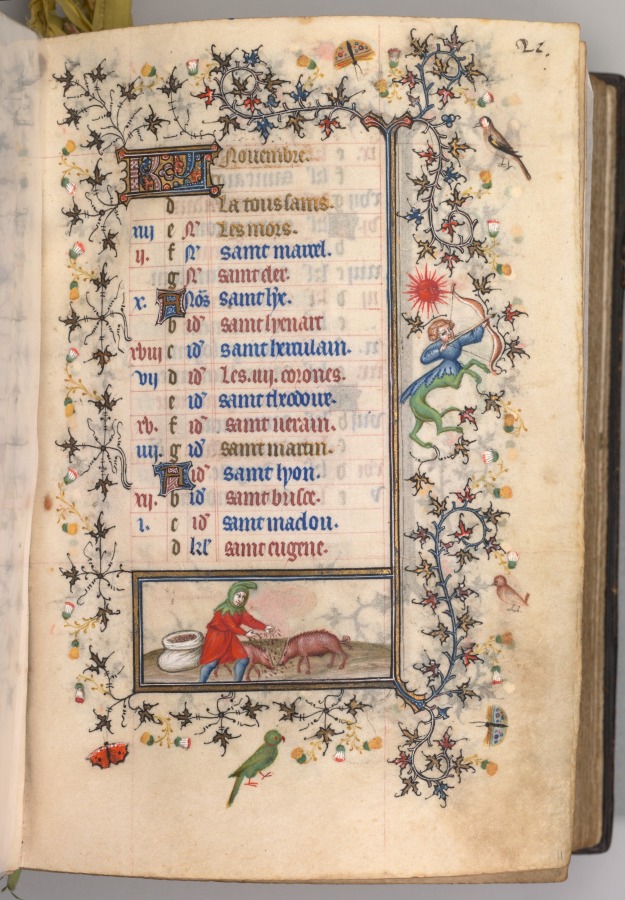 21.
KL Nouembre.
d La tous sains.
iiij e N͛ Les mors.
ij. f N͛ saint marcel.
g N͛ saint cler.
x. A Nos̄ saint lye.
b id͛ saint lyenart.
xviij c id͛ saint herculain.
vij d id͛ Les .iiij. corones.
e id͛ saint theodore.
xv. f id͛ saint uerain.
iiij. g id͛ saint martin.
A id͛ saint lyon.
xij. b id͛ saint brisce.
i. c id͛ saint maclou.
d kl͛ saint eugene.